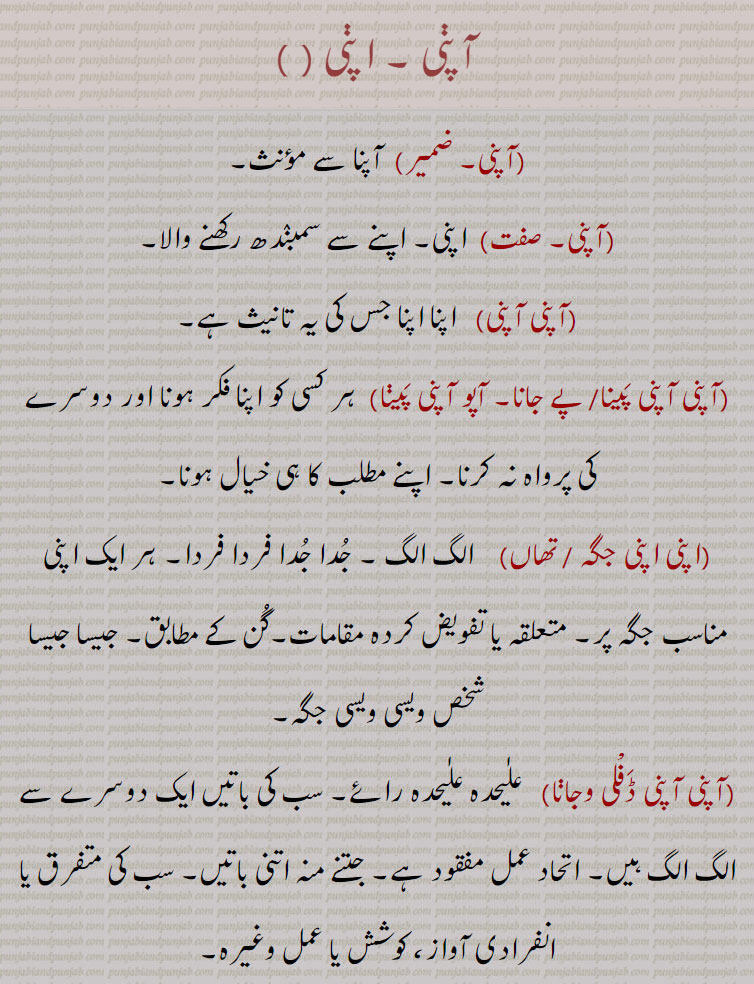 آپݨی ۔ اپݨی ( )
(آپنی۔ ضمیر) آپنا سے مؤنث۔
(آپنی۔ صفت) اپنی۔ اپنے سے سمبندھ رکھنے والا۔
(آپنی آپنی) اپنا اپنا جس کی یہ تانیث ہے۔
(آپنی آپنی پَینا/ پے جانا۔ آپو آپنی پَیݨا) ہر کسی کو اپنا فکر ہونا اور دوسرے
کی پرواہ نہ کرنا۔ اپنے مطلب کا ہی خیال ہونا۔
(اپنی اپنی جگہ / تھاں) الگ الگ ۔ جُدا جُدا فردا فردا۔ ہر ایک اپنی
مناسب جگہ پر۔ متعلقہ یا تفویض کردہ مقامات۔گُن کے مطابق۔ جیسا جیسا
شخص ویسی ویسی جگہ۔
(آپنی آپنی ڈَفْلی وجاݨا) علیٰحدہ علیٰحدہ رائے۔ سب کی باتیں ایک دوسرے سے
الگ الگ ہیں۔ اتحاد عمل مفقود ہے۔ جتنے منہ اتنی باتیں۔ سب کی متفرق یا
انفرادی آواز، کوشش یا عمل وغیرہ۔